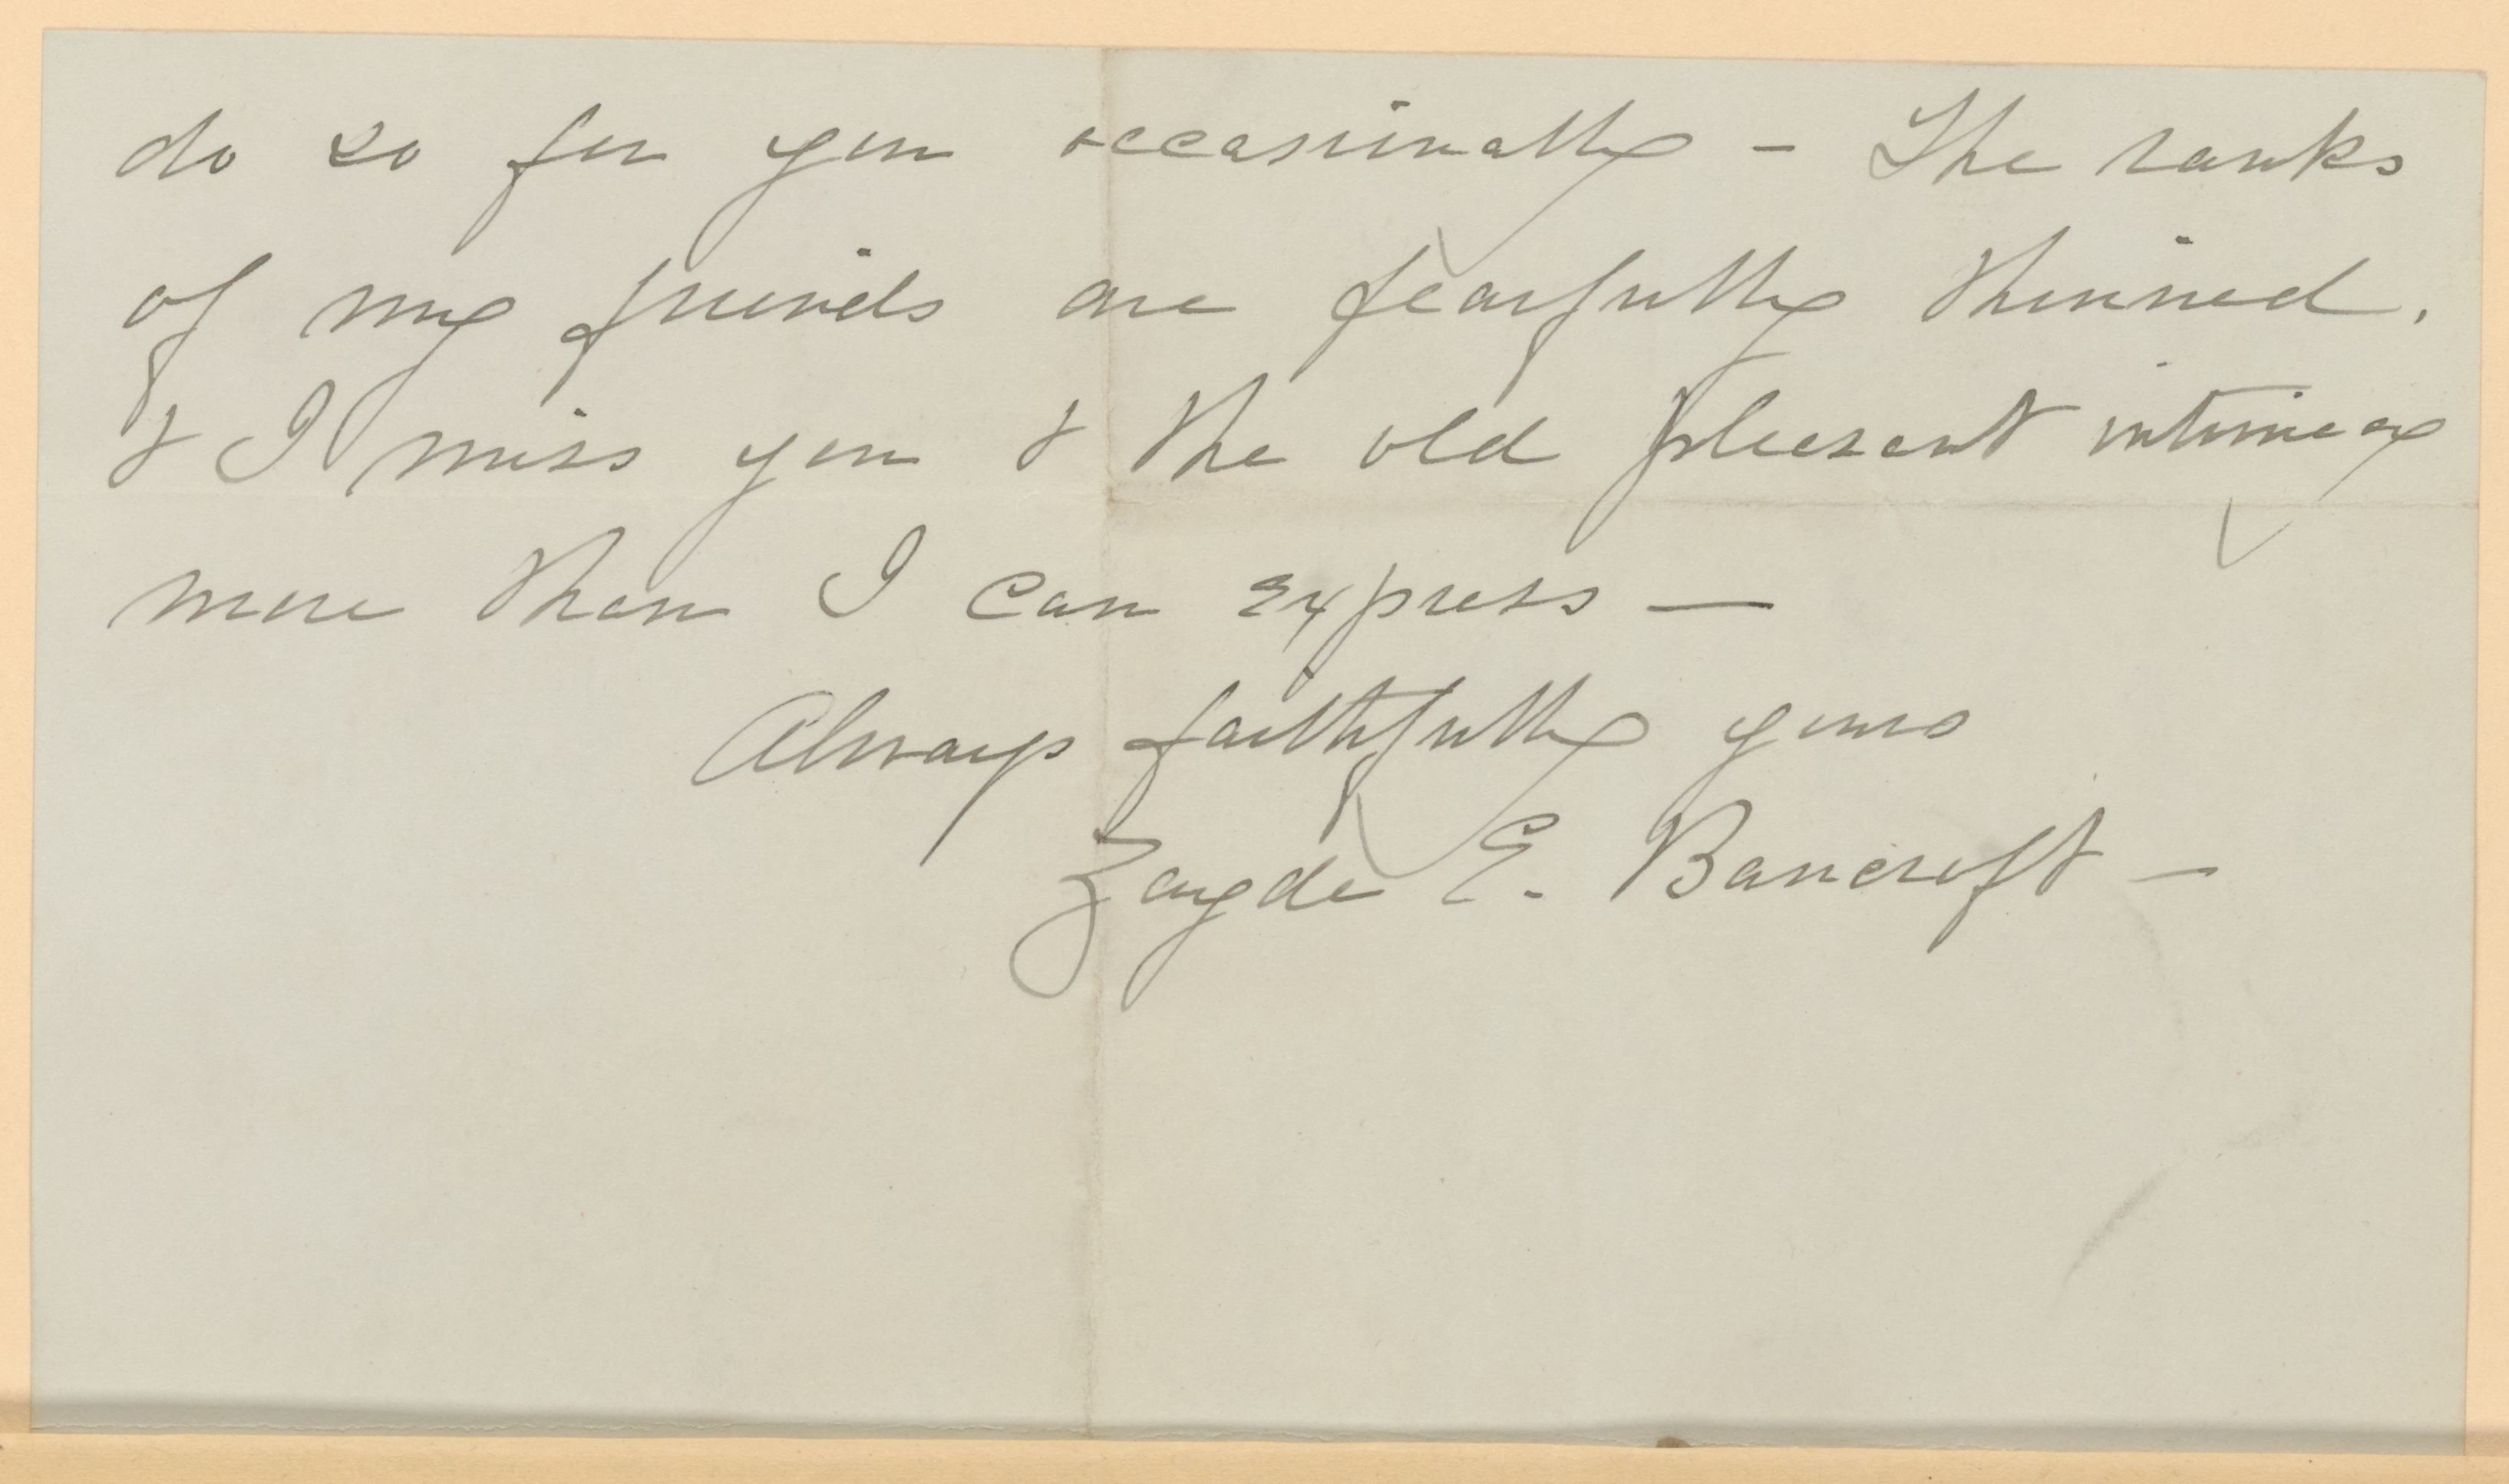 do so for you occasionally – The ranks
of my friends are fearfully thinned,
& I miss you & the old pleasant intimacy
more than I can express —
Always faithfully yours
Zayde E. Bancroft –